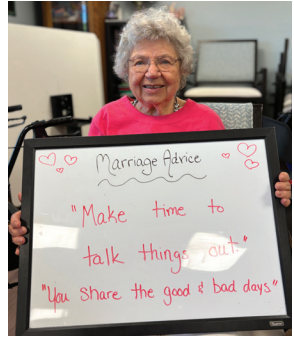 Marriage Advice
"Make time to
talk things out."
"You share the good & bad days"